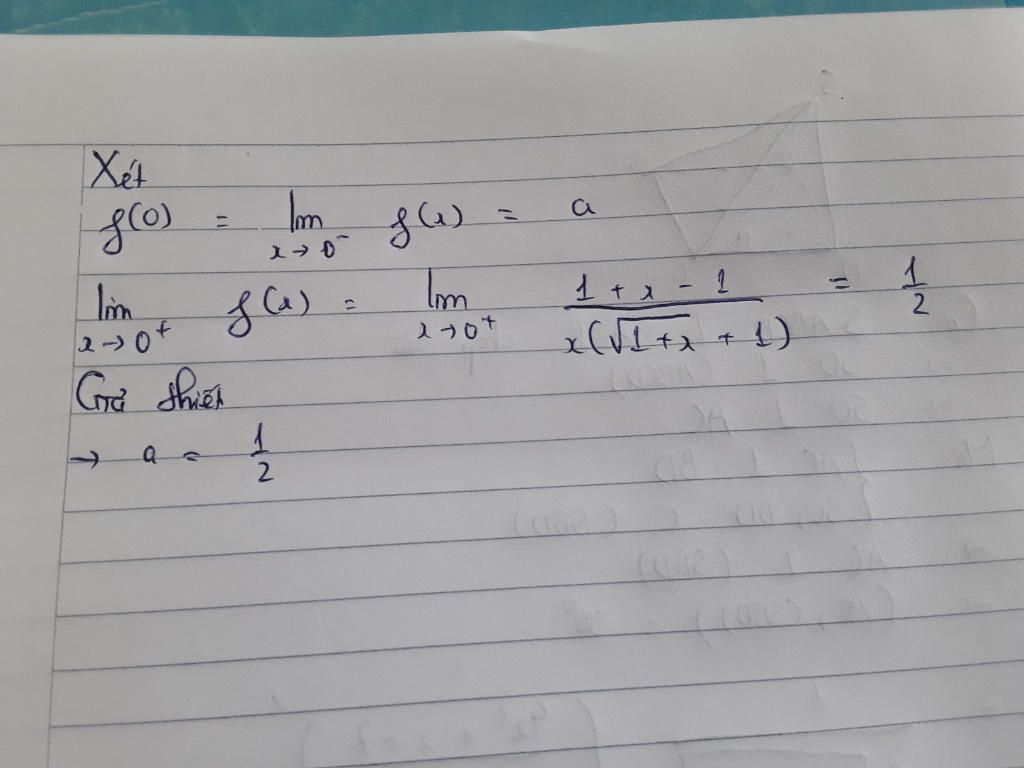 Xét
f(0) = lim x→0⁻ f(x) = a
lim x→0⁺ f(x) = lim x→0⁺ (1 + x - 1)/(x(√(1+x) + 1)) = 1/2
Giả thiết
→ a = 1/2